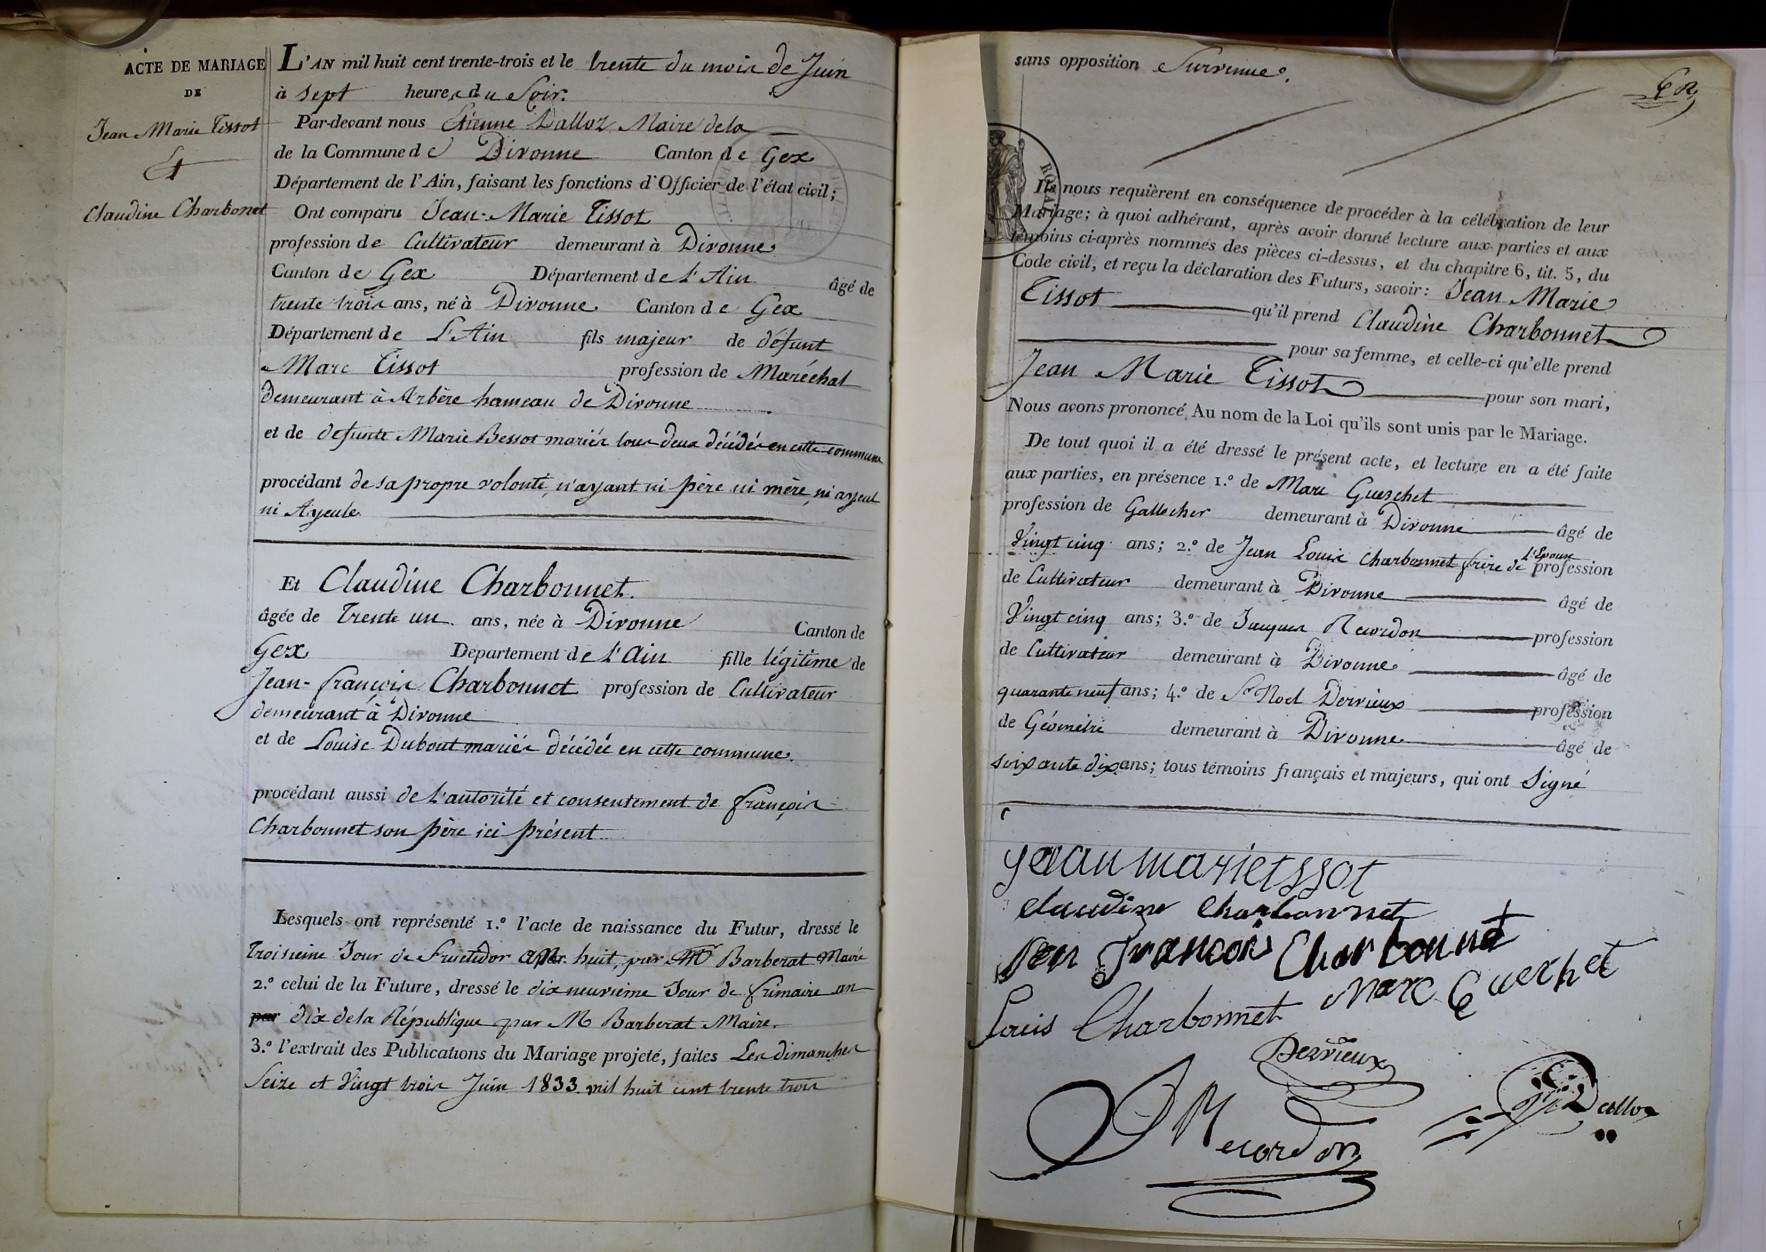 ACTE DE MARIAGE
DE
Jean Marie Tissot
&
Claudine Charbonnet
L'AN mil huit cent trente-trois et le trente du mois de Juin
à sept heures du Soir.
Par-devant nous Etienne Dalloz Maire de la
de la Commune de Divonne Canton de Gex
Département de l'Ain, faisant les fonctions d'Officier de l'état civil;
Ont comparu Jean-Marie Tissot
profession de Cultivateur demeurant à Divonne
Canton de Gex Département de L'Ain âgé de
trente trois ans, né à Divonne Canton de Gex
Département de L'Ain fils majeur de défunt
Marc Tissot profession de Maréchal
demeurant à Arbère hameau de Divonne
et de defunte Marie Bessot mariés tous deux décédés en cette commune
procédant de sa propre volonté, n'ayant ni père ni mère, ni ayeul
ni Ayeule
Et Claudine Charbonnet.
âgée de Trente un ans, née à Divonne Canton de
Gex Département de L'Ain fille légitime de
Jean-françois Charbonnet profession de Cultivateur
demeurant à Divonne
et de Louise Dubout mariés décédée en cette commune.
procédant aussi de l'autorité et consentement de françois
Charbonnet son père ici présent
Lesquels ont représenté 1.º l'acte de naissance du Futur, dressé le
troisieme Jour de Fructidor an huit, par Mr Barberat Maire
2.º celui de la Future, dressé le dix neuvieme Jour de frimaire an
par dix de la République par M Barberat Maire.
3.º l'extrait des Publications du Mariage projeté, faites Les dimanches
Seize et Vingt trois Juin 1833 mil huit cent trente trois
sans opposition Survenue.
Ils nous requièrent en conséquence de procéder à la célébration de leur
Mariage; à quoi adhérant, après avoir donné lecture aux parties et aux
témoins ci-après nommés des pièces ci-dessus, et du chapitre 6, tit. 5, du
Code civil, et reçu la déclaration des Futurs, savoir: Jean Marie
Tissot qu'il prend Claudine Charbonnet
pour sa femme, et celle-ci qu'elle prend
Jean Marie Tissot pour son mari,
Nous avons prononcé Au nom de la Loi qu'ils sont unis par le Mariage.
De tout quoi il a été dressé le présent acte, et lecture en a été faite
aux parties, en présence 1.º de Marc Guerchet
profession de demeurant à Divonne âgé de
Vingt cinq ans; 2.º de Jean Louis Charbonnet frère de L'Epouse profession
de Cultivateur demeurant à Divonne âgé de
Vingt cinq ans; 3.º de Jacques Recordon profession
de Cultivateur demeurant à Divonne âgé de
quarante neuf ans; 4.º de Sr Noel Dervieux profession
de Géomètre demeurant à Divonne âgé de
soixante dix ans; tous témoins français et majeurs, qui ont Signé
jean marie tssot
claudine charbonnet
Jen François Charbonnet
Louis Charbonnet Marc Guerchet
Dervieux
Dalloz
J Recordon